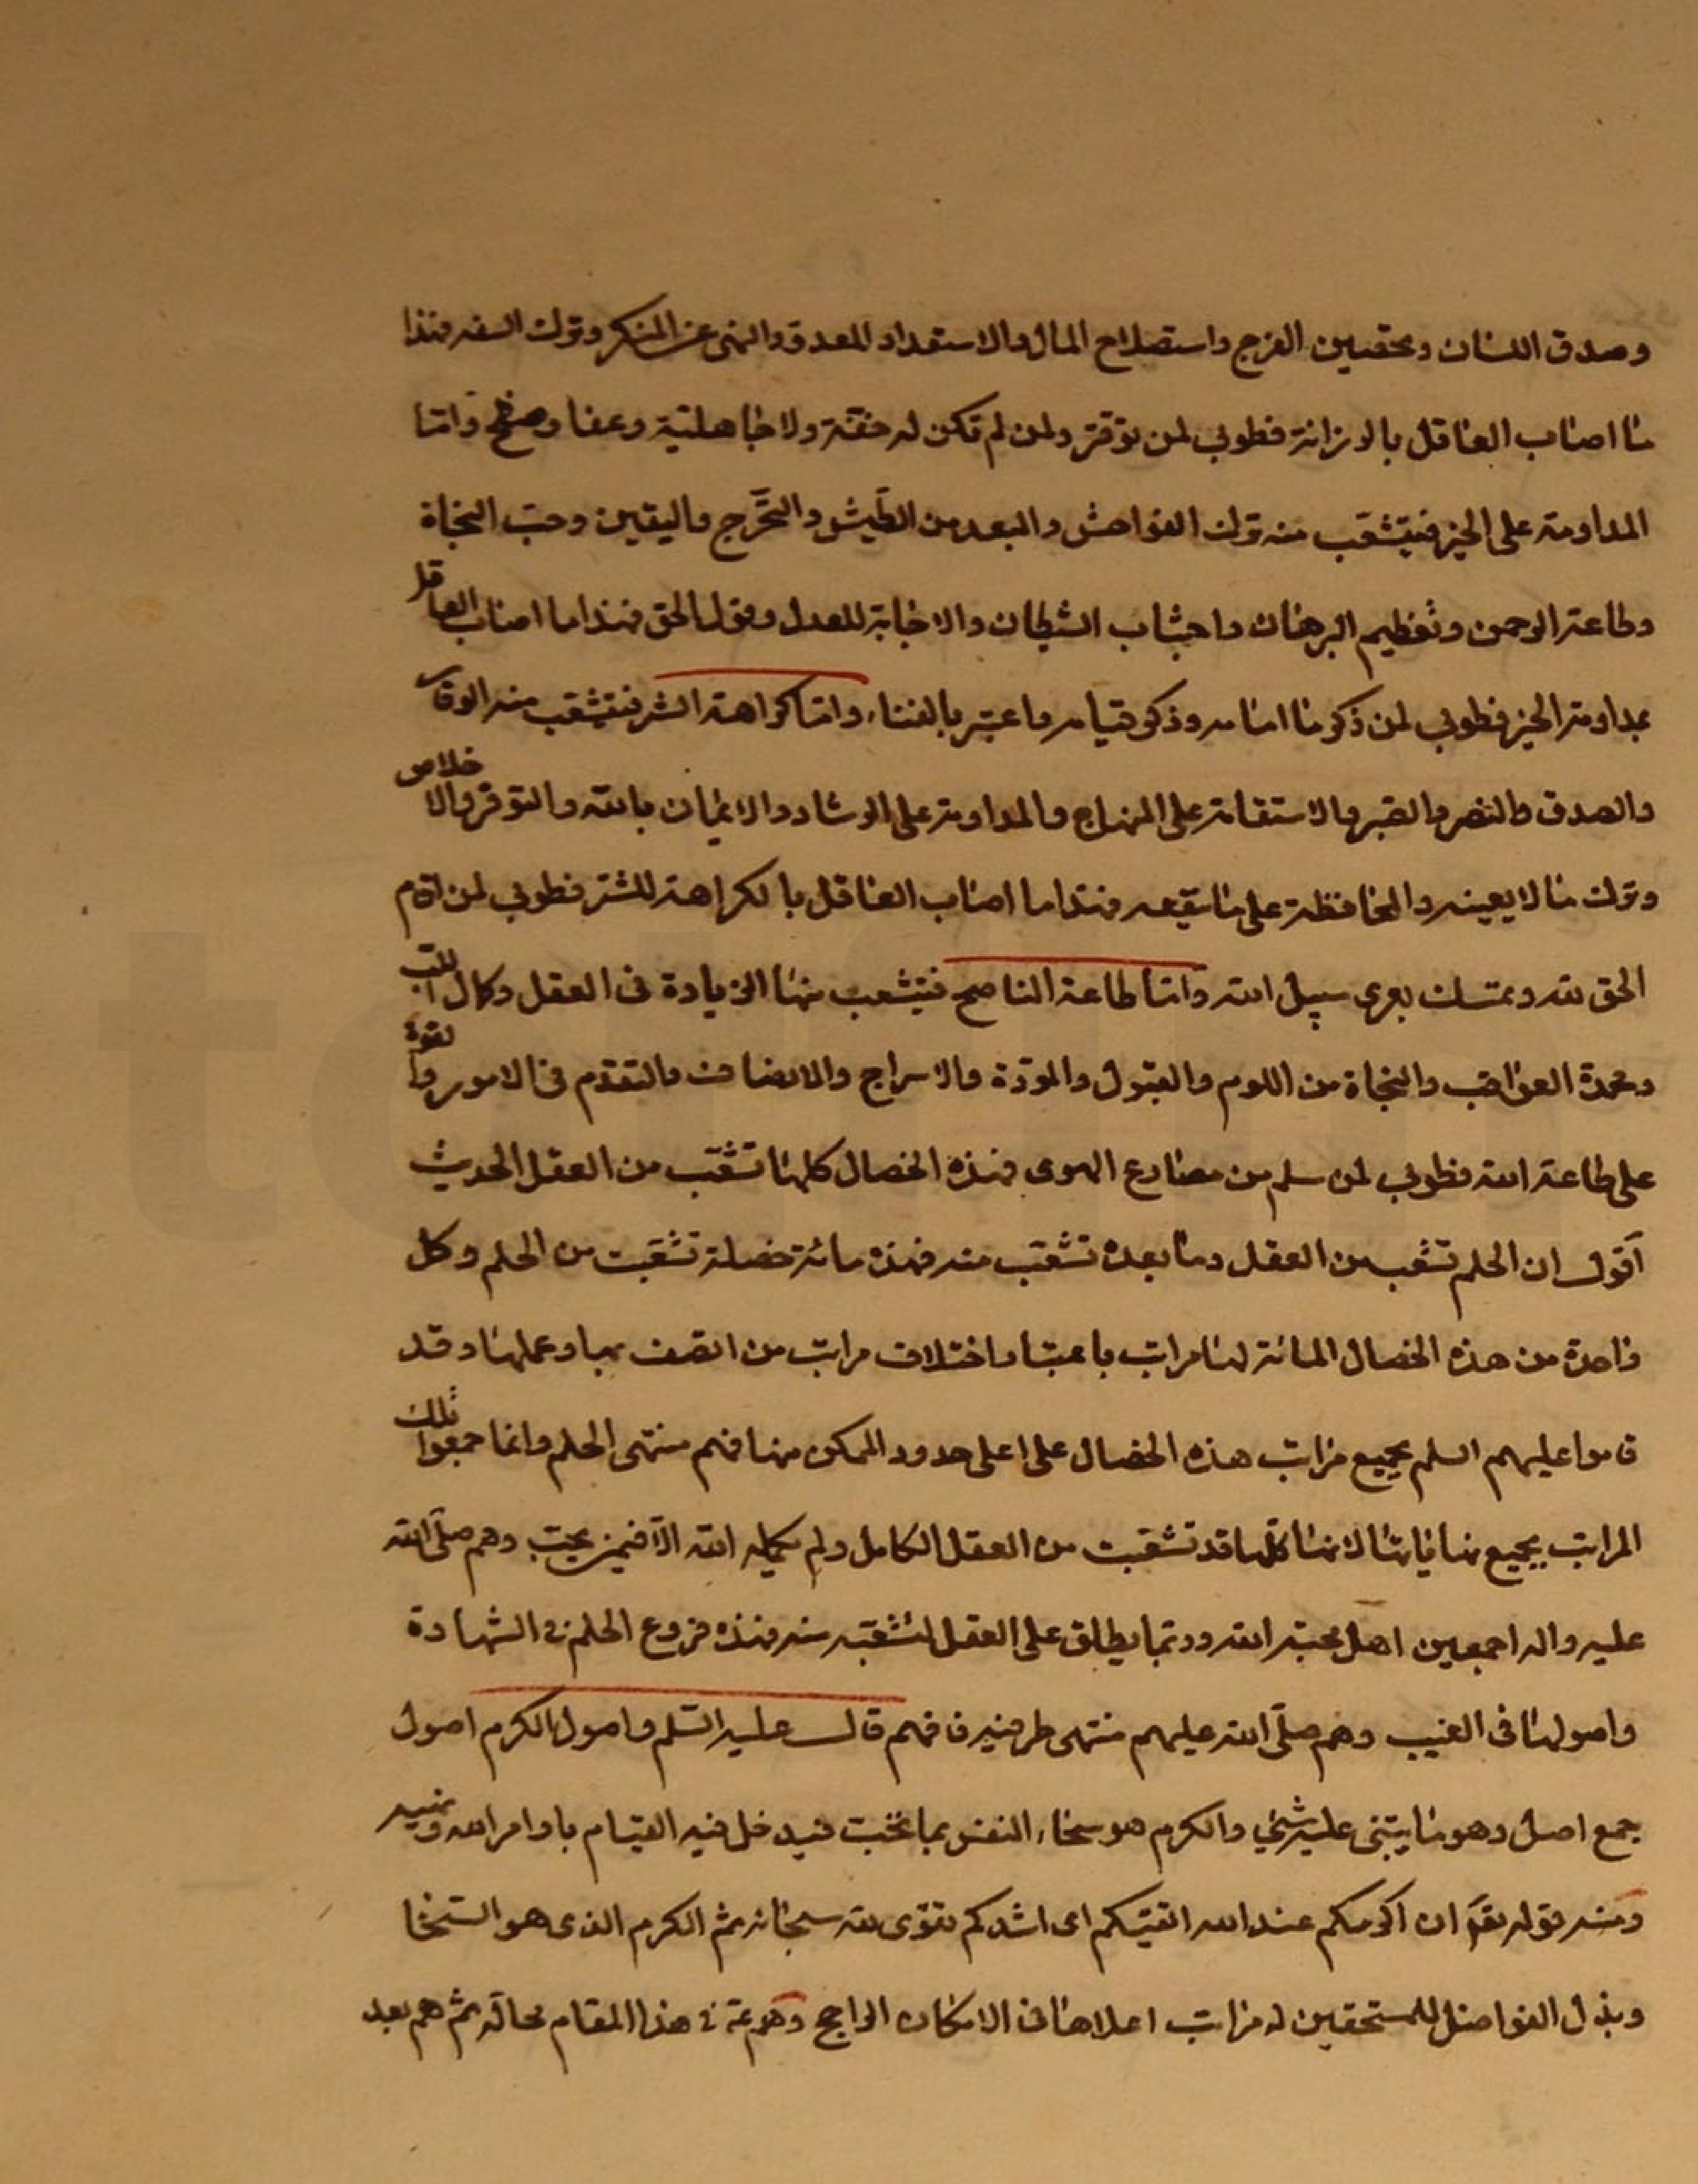 وصدق اللسان وتحصين الفرج واستصلاح المال والاستعداد للعدو والنهى عن المنكر وترك السفه فهذا
ما اصاب العاقل بالرزانة فطوبى لمن توقر ولمن لم تكن له خفة ولا جاهلية وعفا وصفح وامّا
المداومة على الخير فيتشعّب منه ترك الفواحش والبعد من الطّيش والتحّرج واليقين وحبّ النجاة
وطاعة الرحمن وتعظيم البرهان واجتناب الشيطان والاجابة للعدل وقول الحق فهذا ما اصاب العاقل
بمداومة الخير فطوبى لمن ذكر ما امامه وذكر قيامه واعتبر بالفناء وامّا كراهة الشر فيتشعّب منه الوقار
والصدق والنصر والصّبر والاستقامة على المنهاج والمداومة على الرشاد والايمان بالله والتوقر والاخلاص
وترك ما لا يعينه والمحافظة على ما ينفعه فهذا ما اصاب العاقل بالكراهة للشّر فطوبى لمن اقام
الحق لله وتمسك بعرى سبيل الله وامّا طاعة الناصح فيتشعب منها الزيادة فى العقل وكمال اللّب
ومحمدة العواقب والنجاة من اللوم والقبول والمودّة والاسراج والانصاف والتقدّم فى الامور والقوة
على طاعة الله فطوبى لمن سلم من مصارع الهوى فهذه الخصال كلها تتشعّب من العقل الحديث
اقول ان الحلم تشعّب من العقل وما بعده تشعّب منه فهذه مائة خصلة تشعّبت من الحلم وكل
واحدة من هذه الخصال المائة لها مراتب باعتبار اختلاف مراتب من اتصف بها وعملها وقد
قاموا عليهم السلم بجميع مراتب هذه الخصال على اعلى حدود الممكن منها فهم منتهى الحلم وانما جمعوا تلك
المراتب بجميع نهاياتها لانها كلّها قد تشعّبت من العقل الكامل ولم يكمله الله الّا فيمن يحبّ وهم صلّى الله
عليه واله اجمعين اهل محبّة الله وربّما يطلق على العقل لتشعّبه منه فهذه فروع الحلم فى الشهادة
واصولها فى الغيب وهم صلّى الله عليهم منتهى طرفيه فافهم قال عليه السّلم واصول الكرم اصول
جمع اصل وهو ما يبتنى عليه شئ والكرم هو سخاء النفس بما تحبّ فيدخل فيه القيام باوامر الله ونهيه
ومنه قوله تعالى ان اكرمكم عند الله اتقيكم اى اشدكم تقوى لله سبحانه ثم الكرم الذى هو السّخا
وبذل الفواضل للمستحقين له مراتب اعلاها فى الامكان الراجح وهم ع فى هذا المقام محالّه ثم هم بعد